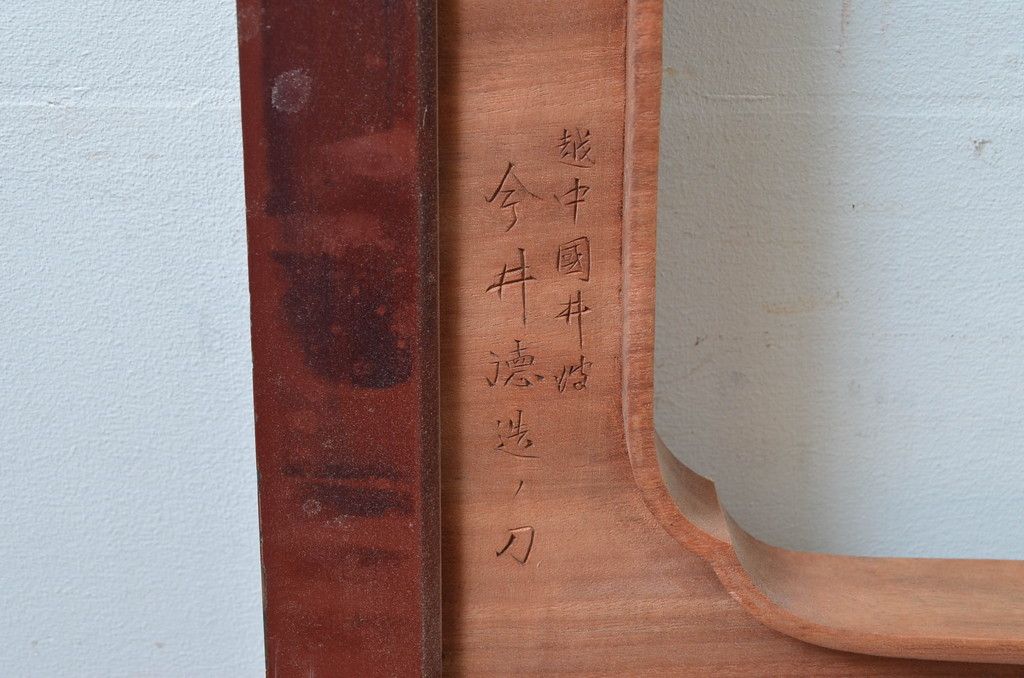 越中國井波
今井德造ノ刀